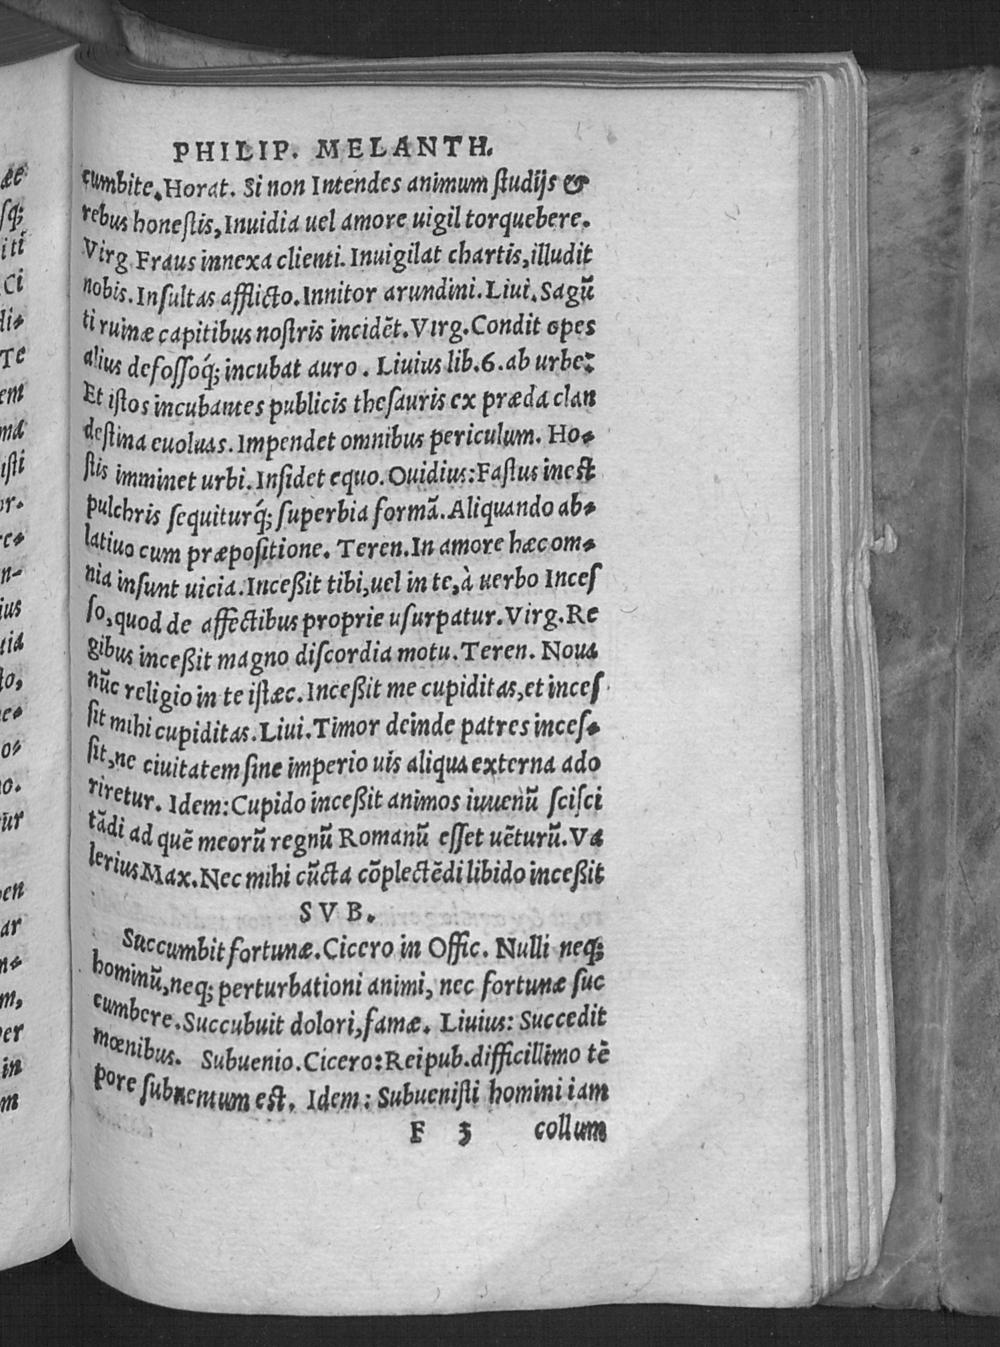 PHILIP. MELANTH.
cumbite. Horat. Si non Intendes animum studijs &
rebus honestis, Inuidia uel amore uigil torquebere.
Virg Fraus innexa clienti. Inuigilat chartis, illudit
nobis. Insultas afflicto. Innitor arundini. Liui. Sagũ
ti ruinæ capitibus nostris incidẽt. Virg. Condit opes
alius defossoq́; incubat auro. Liuius lib. 6. ab urbe:
Et istos incubantes publicis thesauris ex præda clan
destina euoluas. Impendet omnibus periculum. Ho-
stis imminet urbi. Insidet equo. Ouidius: Fastus inest
pulchris sequiturq́; superbia formã. Aliquando ab-
latiuo cum præpositione. Teren. In amore hæc om-
nia insunt uicia. Inceßit tibi, uel in te, à uerbo Inces
so, quod de affectibus proprie usurpatur. Virg. Re
gibus inceßit magno discordia motu. Teren. Noua
nũc religio in te istæc. Inceßit me cupiditas, et inces
sit mihi cupiditas. Liui. Timor deinde patres inces-
sit, ne ciuitatem sine imperio uis aliqua externa ado
riretur. Idem: Cupido inceßit animos iuuenũ scisci
tãdi ad quẽ meorũ regnũ Romanũ esset uẽturũ. Va
lerius Max. Nec mihi cũcta cõplectẽdi libido inceßit
SVB.
Succumbit fortunæ. Cicero in Offic. Nulli neq;
hominũ, neq; perturbationi animi, nec fortunæ suc
cumbere. Succubuit dolori, famæ. Liuius: Succedit
mœnibus. Subuenio. Cicero: Reipub. difficillimo tẽ
pore subuentum est. Idem: Subuenisti homini iam
F 3 collum